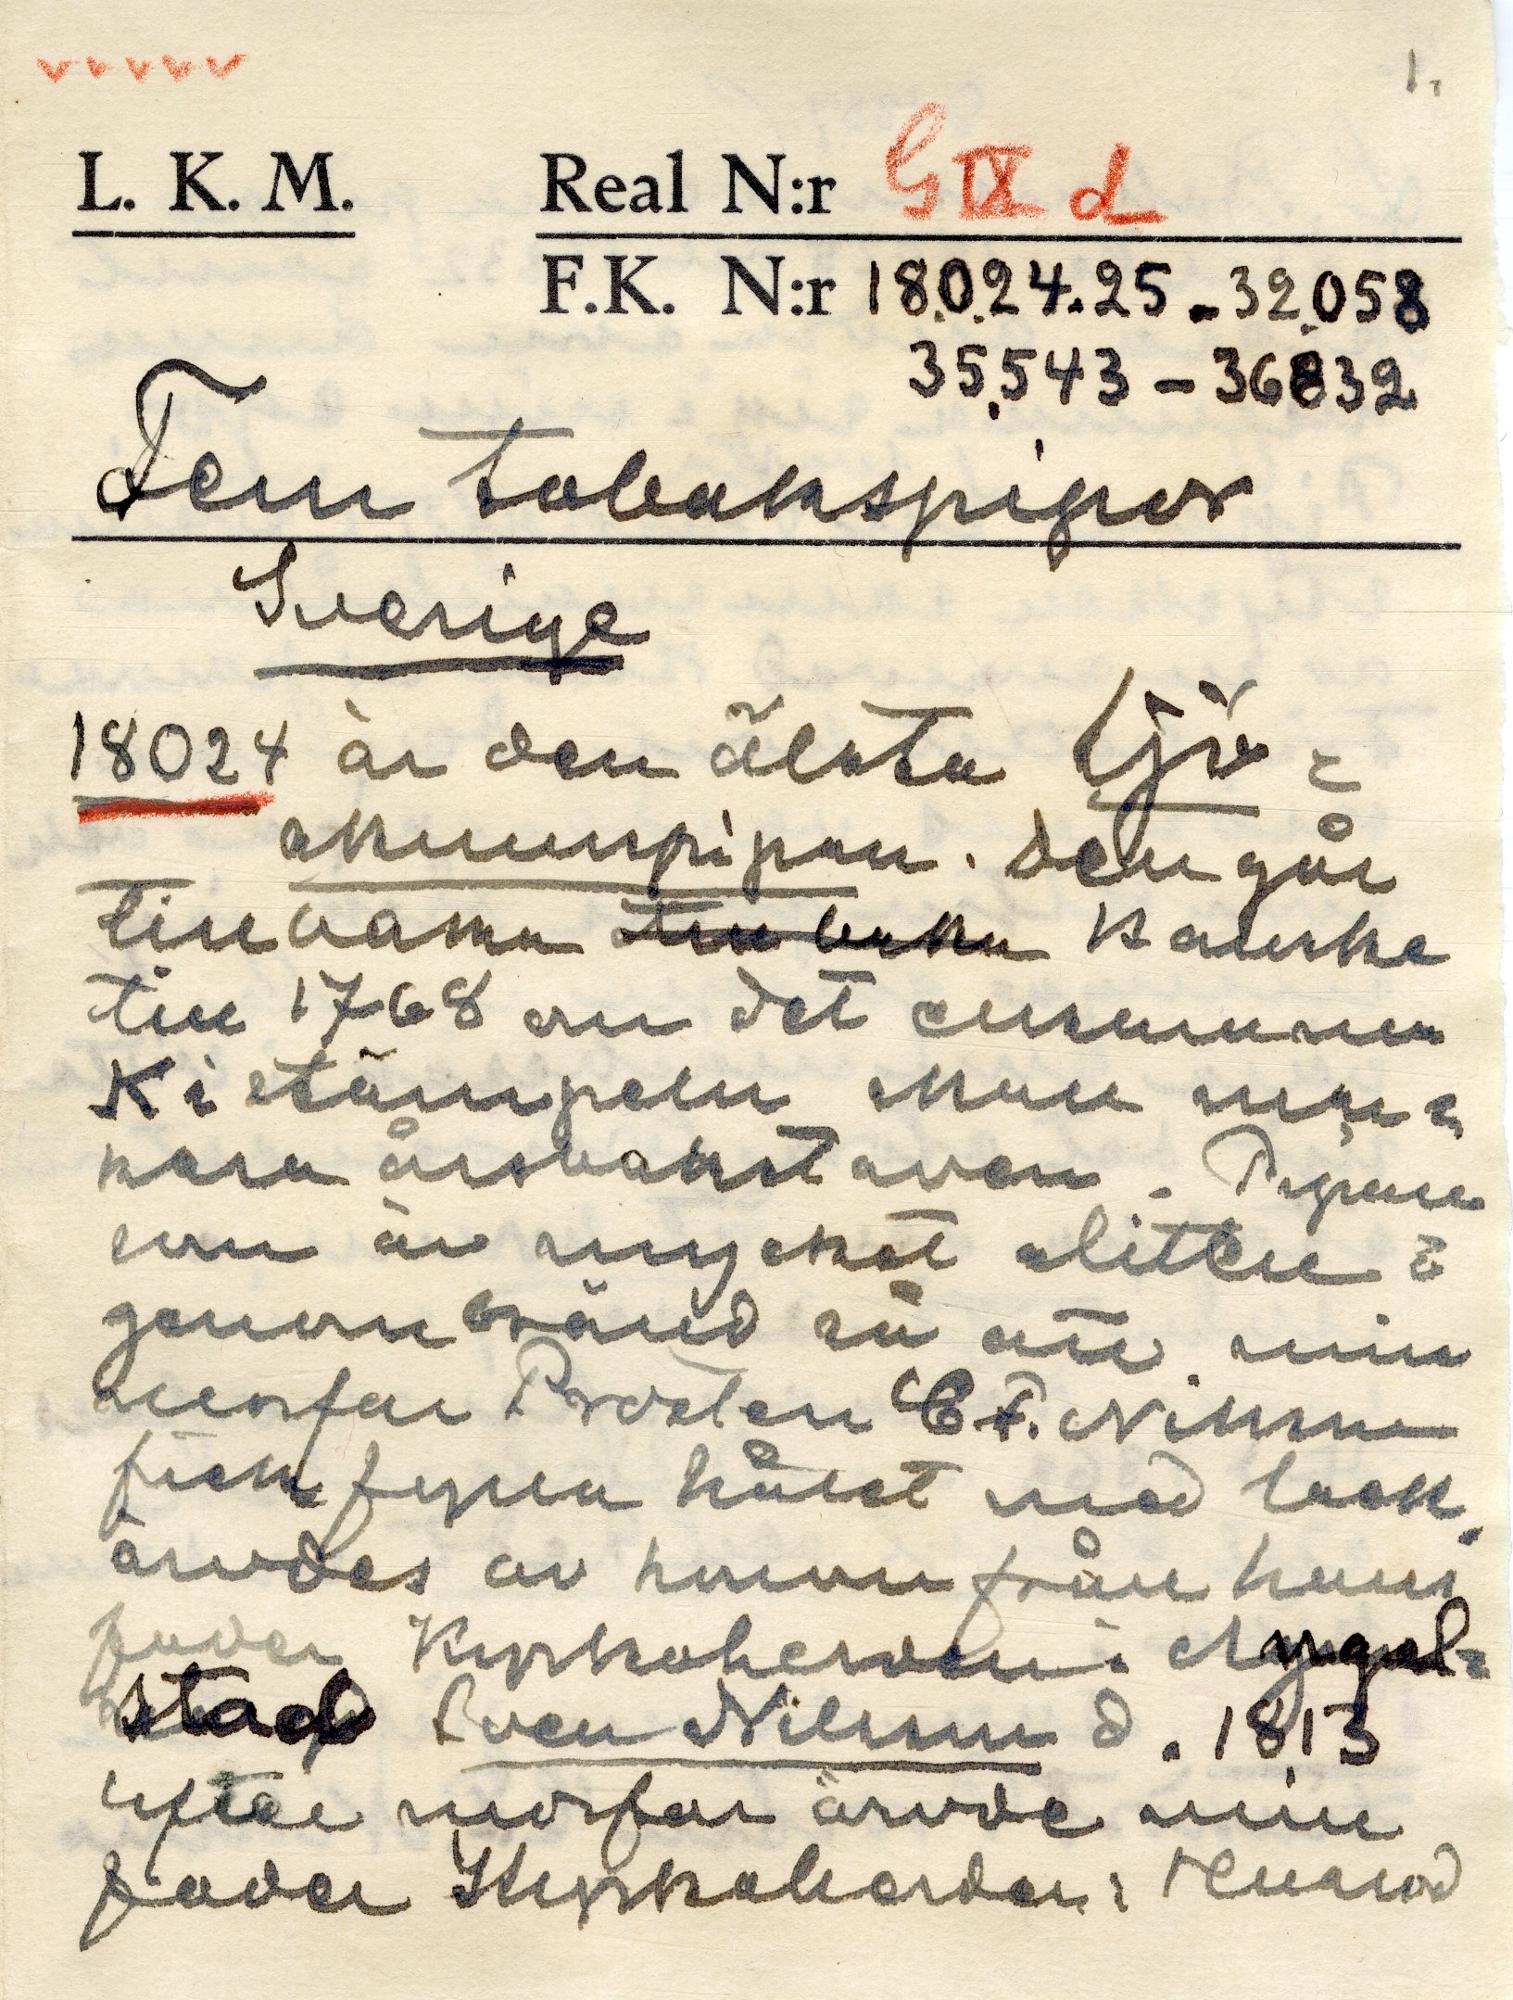 1.
L. K. M. Real N:r G IX d
F.K. N:r 18.0.24.25 - 32.058
35.543 - 36832
Fem tobakspipor
Sverige
18024 är den älsta sjö=
skumspipan. Den går
tillbaka tillbaka kanske
till 1768 om det ensamma
K i stämpeln skall mar=
kera årsbokstaven. Pipan
som är mycket sliten o
genombränd så att min
morfar Prosten C F. Nilsson
fick fylla hålet med lack.
ärvdes av honom från hans
fader Kyrkoherden i
stad Sven Nilsson d. 1813
efter morfar ärvde min
fader Kyrkoherden i